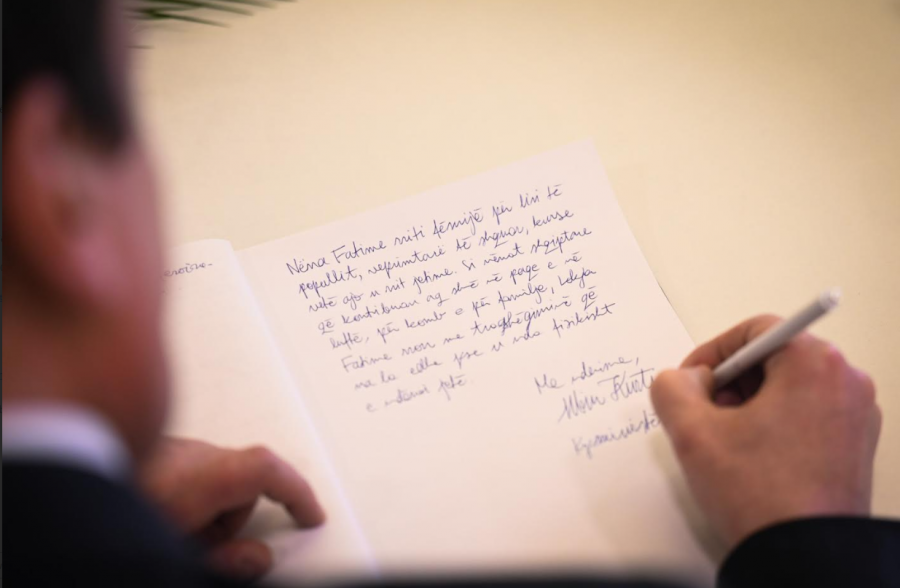 Nëna Fatime rriti fëmijë për liri të
popullit, veprimtarë të shquar, kurse
vetë ajo u rrit jetime. Si nënat shqiptare
që kontribuan aq shumë në paqe e në
luftë, për komb e për familje,
Fatime na me trashëgiminë që
na la edhe pse u nda fizikisht
e nderoi jetë.
Me nderime,
Albin Kurti
Kryeministër